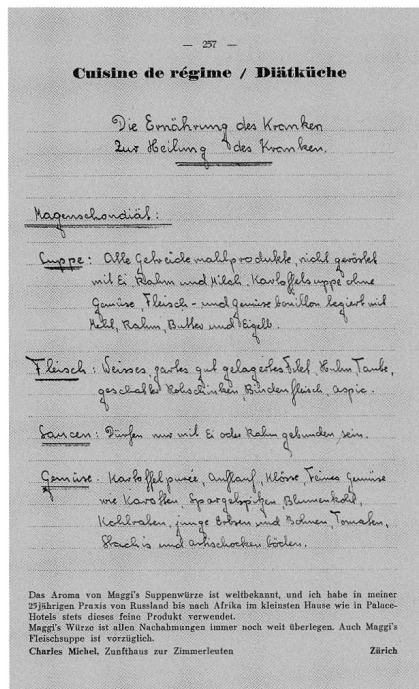 — 257 —
Cuisine de régime / Diätküche
Die Ernährung des Kranken
Zur Heilung des Kranken.
Magenschondiät:
Suppe: Alle Getreidemahlprodukte, nicht geröstet
mit Ei, Rahm und Milch. Kartoffelsuppe ohne
Gemüse, Fleisch- und gemüsebouillon legiert mit
Mehl, Rahm, Butter und Eigelb.
Fleisch: Weisses, zartes gut gelagertes Filet, Huhn, Taube,
geschabter Rohschinken, Bündenfleisch, aspic.
Saucen: Dürfen nur mit Ei oder Rahm gebunden sein.
Gemüse: Kartoffelpurée, Auflauf, Klösse, Feines Gemüse
wie Karotten, Spargelspitzen, Blumenkohl,
Kohlraben, junge Erbsen und Bohnen, Tomaten,
Stachis und artischockenböden.
Das Aroma von Maggi's Suppenwürze ist weltbekannt, und ich habe in meiner
25jährigen Praxis von Russland bis nach Afrika im kleinsten Hause wie in Palace-
Hotels stets dieses feine Produkt verwendet.
Maggi's Würze ist allen Nachahmungen immer noch weit überlegen. Auch Maggi's
Fleischsuppe ist vorzüglich.
Charles Michel, Zunfthaus zur Zimmerleuten Zürich